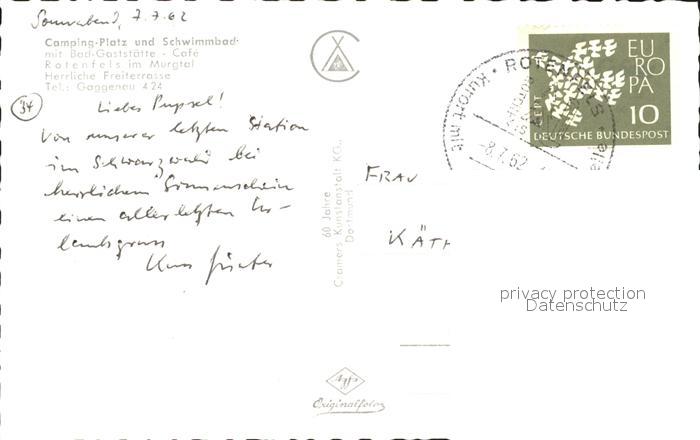 Sonnabend, 7.7.62
Camping-Platz und Schwimmbad
mit Bad-Gaststätte - Café
Rotenfels im Murgtal
Herrliche Freiterrasse
Tel.: Gaggenau 424
34
Liebes Pupsel!
Von unserer letzten Station
im Schwarzwald bei
herrlichem Sonnenschein
einen allerletzten Ur-
laubsgruss
60 Jahre
Cramers Kunstanstalt KG.,
Dortmund
FRAU
KÄTH
EUROPA
SEPT
10
DEUTSCHE BUNDESPOST
ROTENFELS
Kurort mit
-8.7.62
privacy protection
Datenschutz
Agfa
Originalfoto